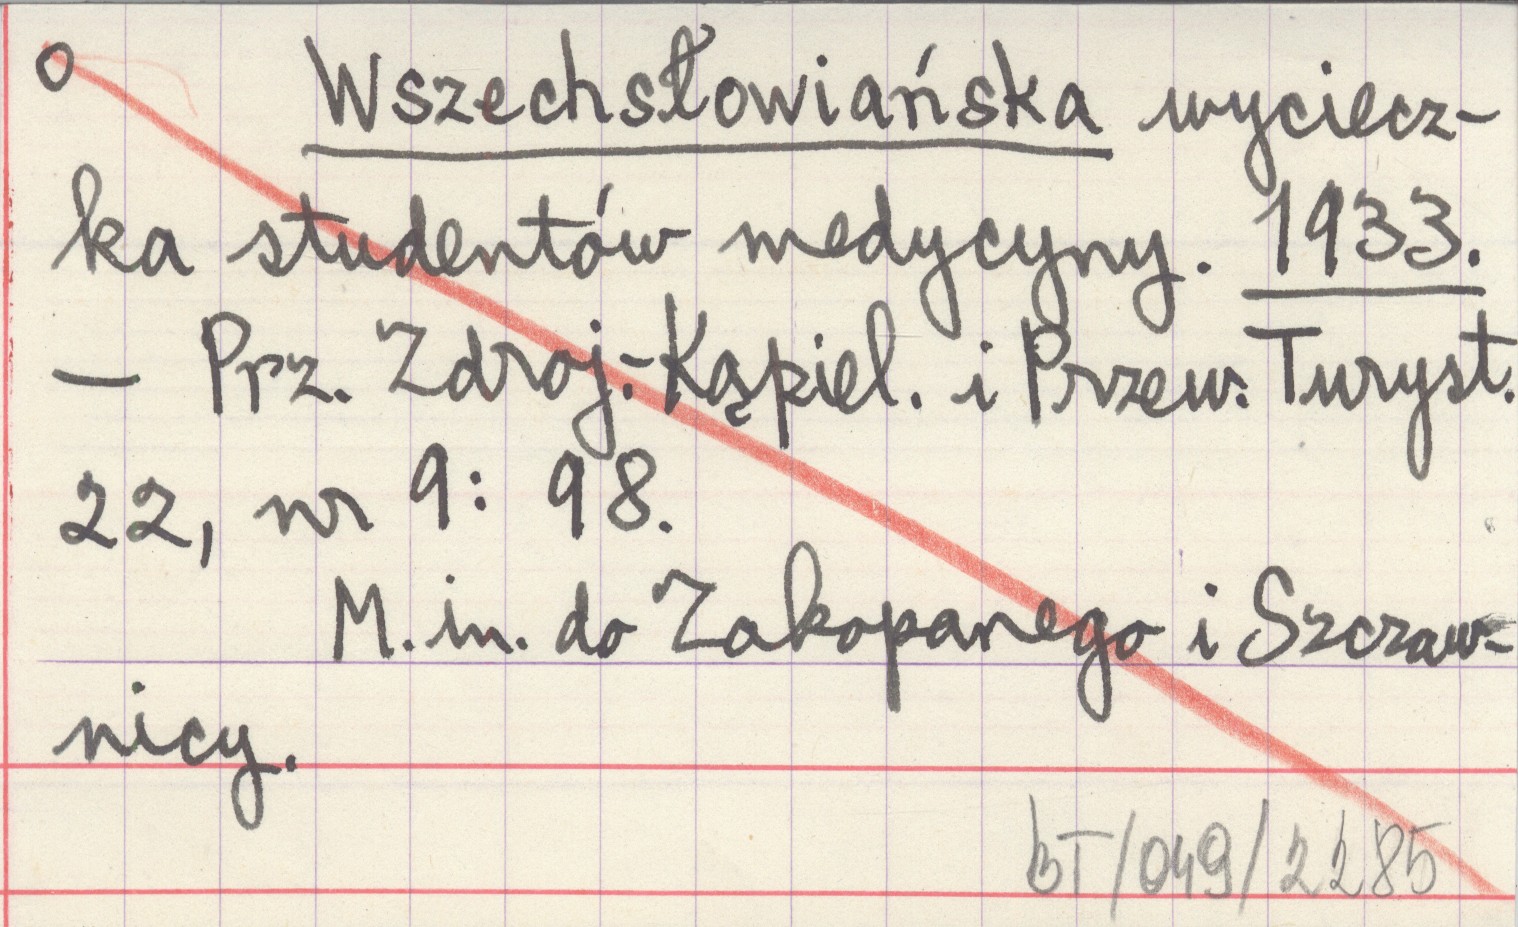 o Wszechsłowiańska wyciecz-
ka studentów medycyny. 1933.
— Prz. Zdroj.-Kąpiel. i Przew. Turyst.
22, nr 9: 98.
M. in. do Zakopanego i Szczaw-
nicy.
bT/049/2285